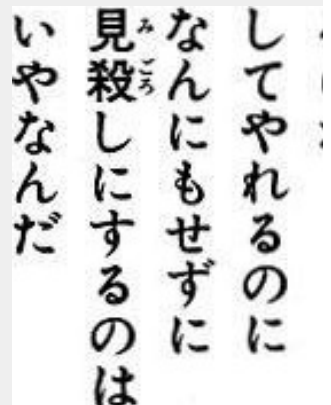 してやれるのに
なんにもせずに
見殺しにするのは
いやなんだ